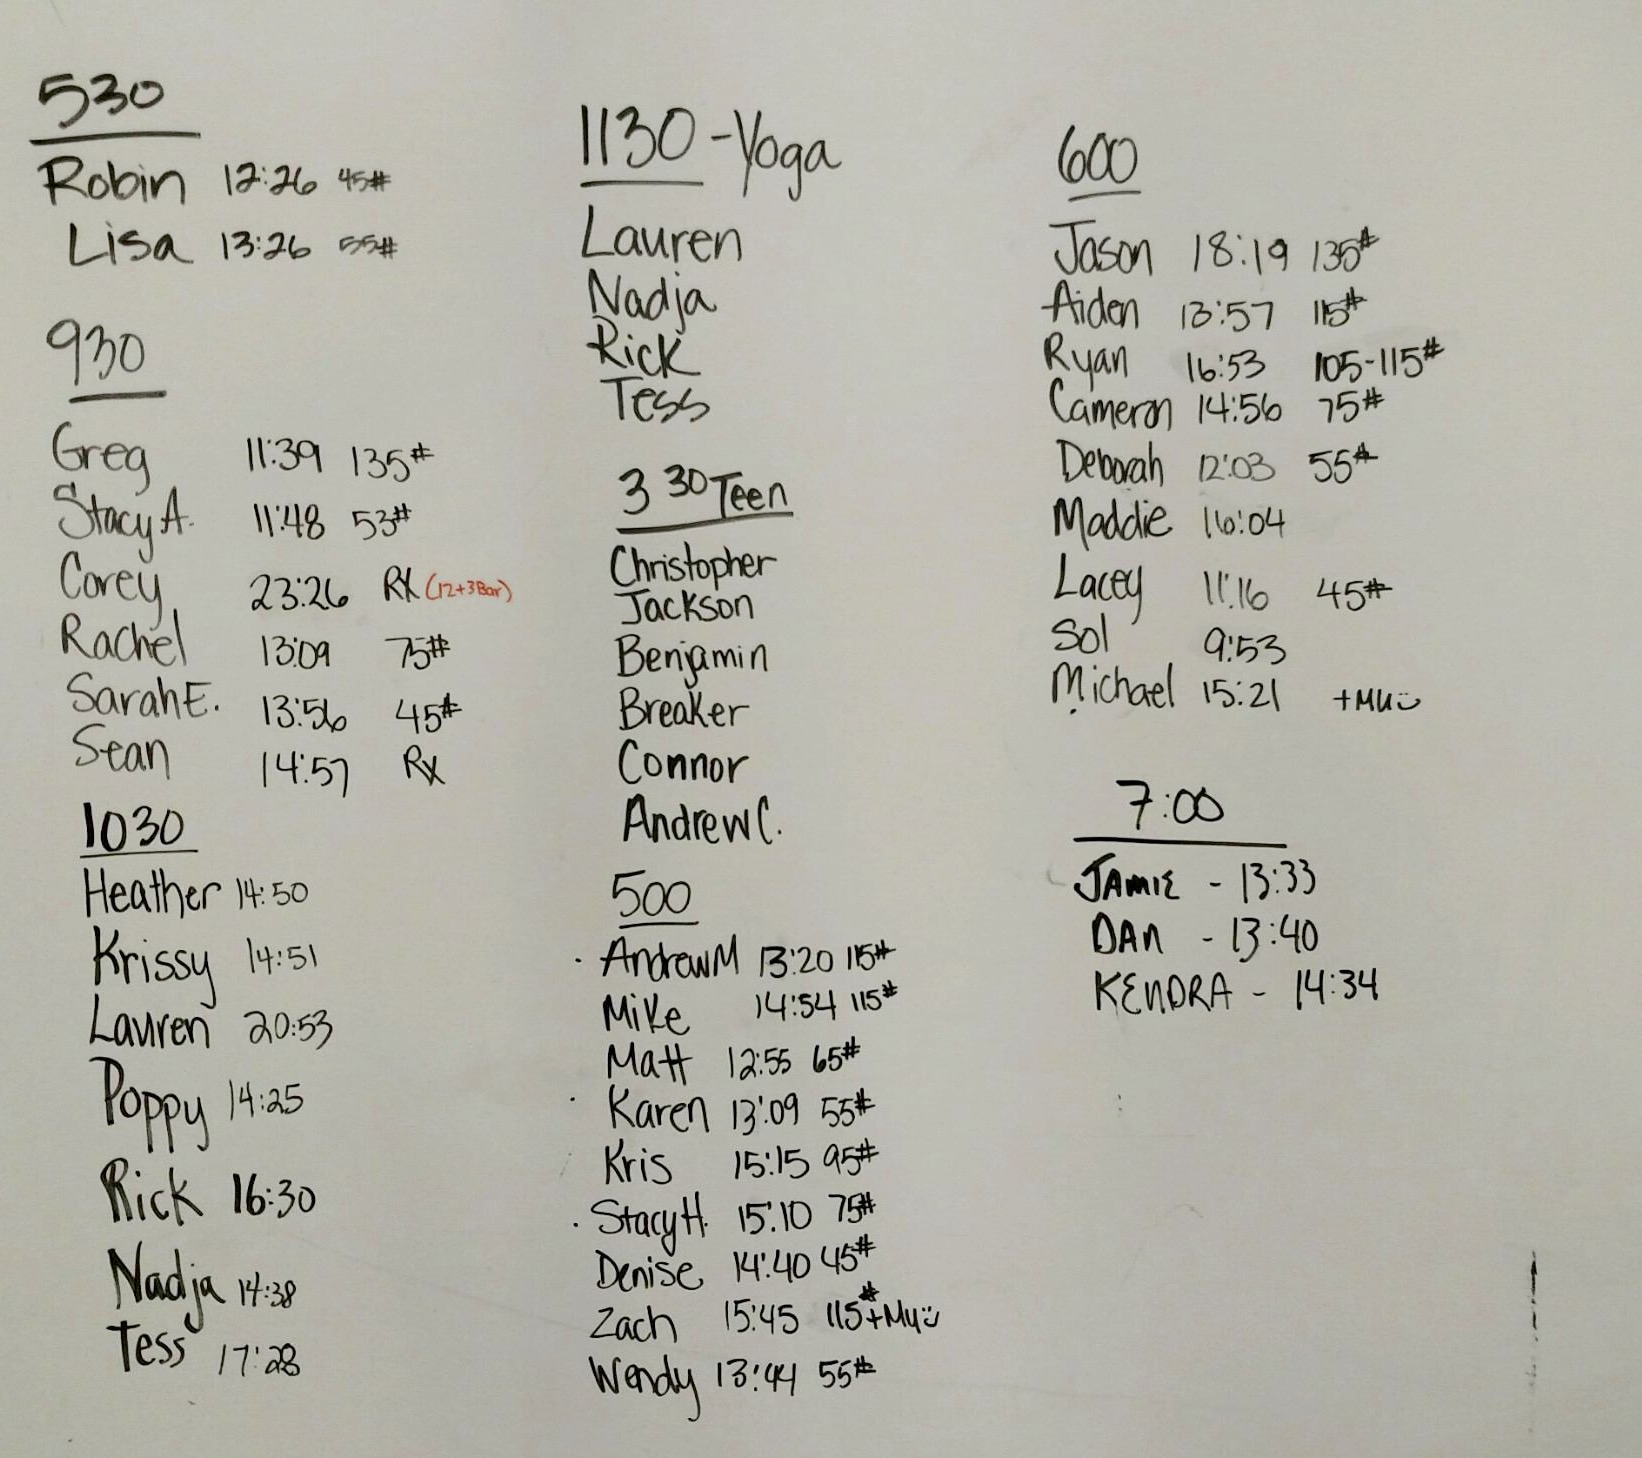 530
Robin 12:26 45#
Lisa 13:26 55#
930
Greg 11:39 135#
Stacy A. 11:48 53#
Corey 23:26 RX (12+3Bar)
Rachel 13:09 75#
Sarah E. 13:56 45#
Sean 14:57 Rx
1030
Heather 14:50
Krissy 14:51
Lauren 20:53
Poppy 14:25
Rick 16:30
Nadja 14:38
Tess 17:28
1130 - Yoga
Lauren
Nadja
Rick
Tess
3 30 Teen
Christopher
Jackson
Benjamin
Breaker
Connor
Andrew C.
500
· Andrew M 13:20 115#
Mike 14:54 115#
Matt 12:55 65#
· Karen 13:09 55#
Kris 15:15 95#
· Stacy H. 15:10 75#
Denise 14:40 45#
Zach 15:45 115#+MU ü
Wendy 13:44 55#
600
Jason 18:19 135#
Aiden 13:57 115#
Ryan 16:53 105-115#
Cameron 14:56 75#
Deborah 12:03 55#
Maddie 16:04
Lacey 11:16 45#
Sol 9:53
Michael 15:21 +MU ü
7:00
JAMIE - 13:33
DAN - 13:40
KENDRA - 14:34